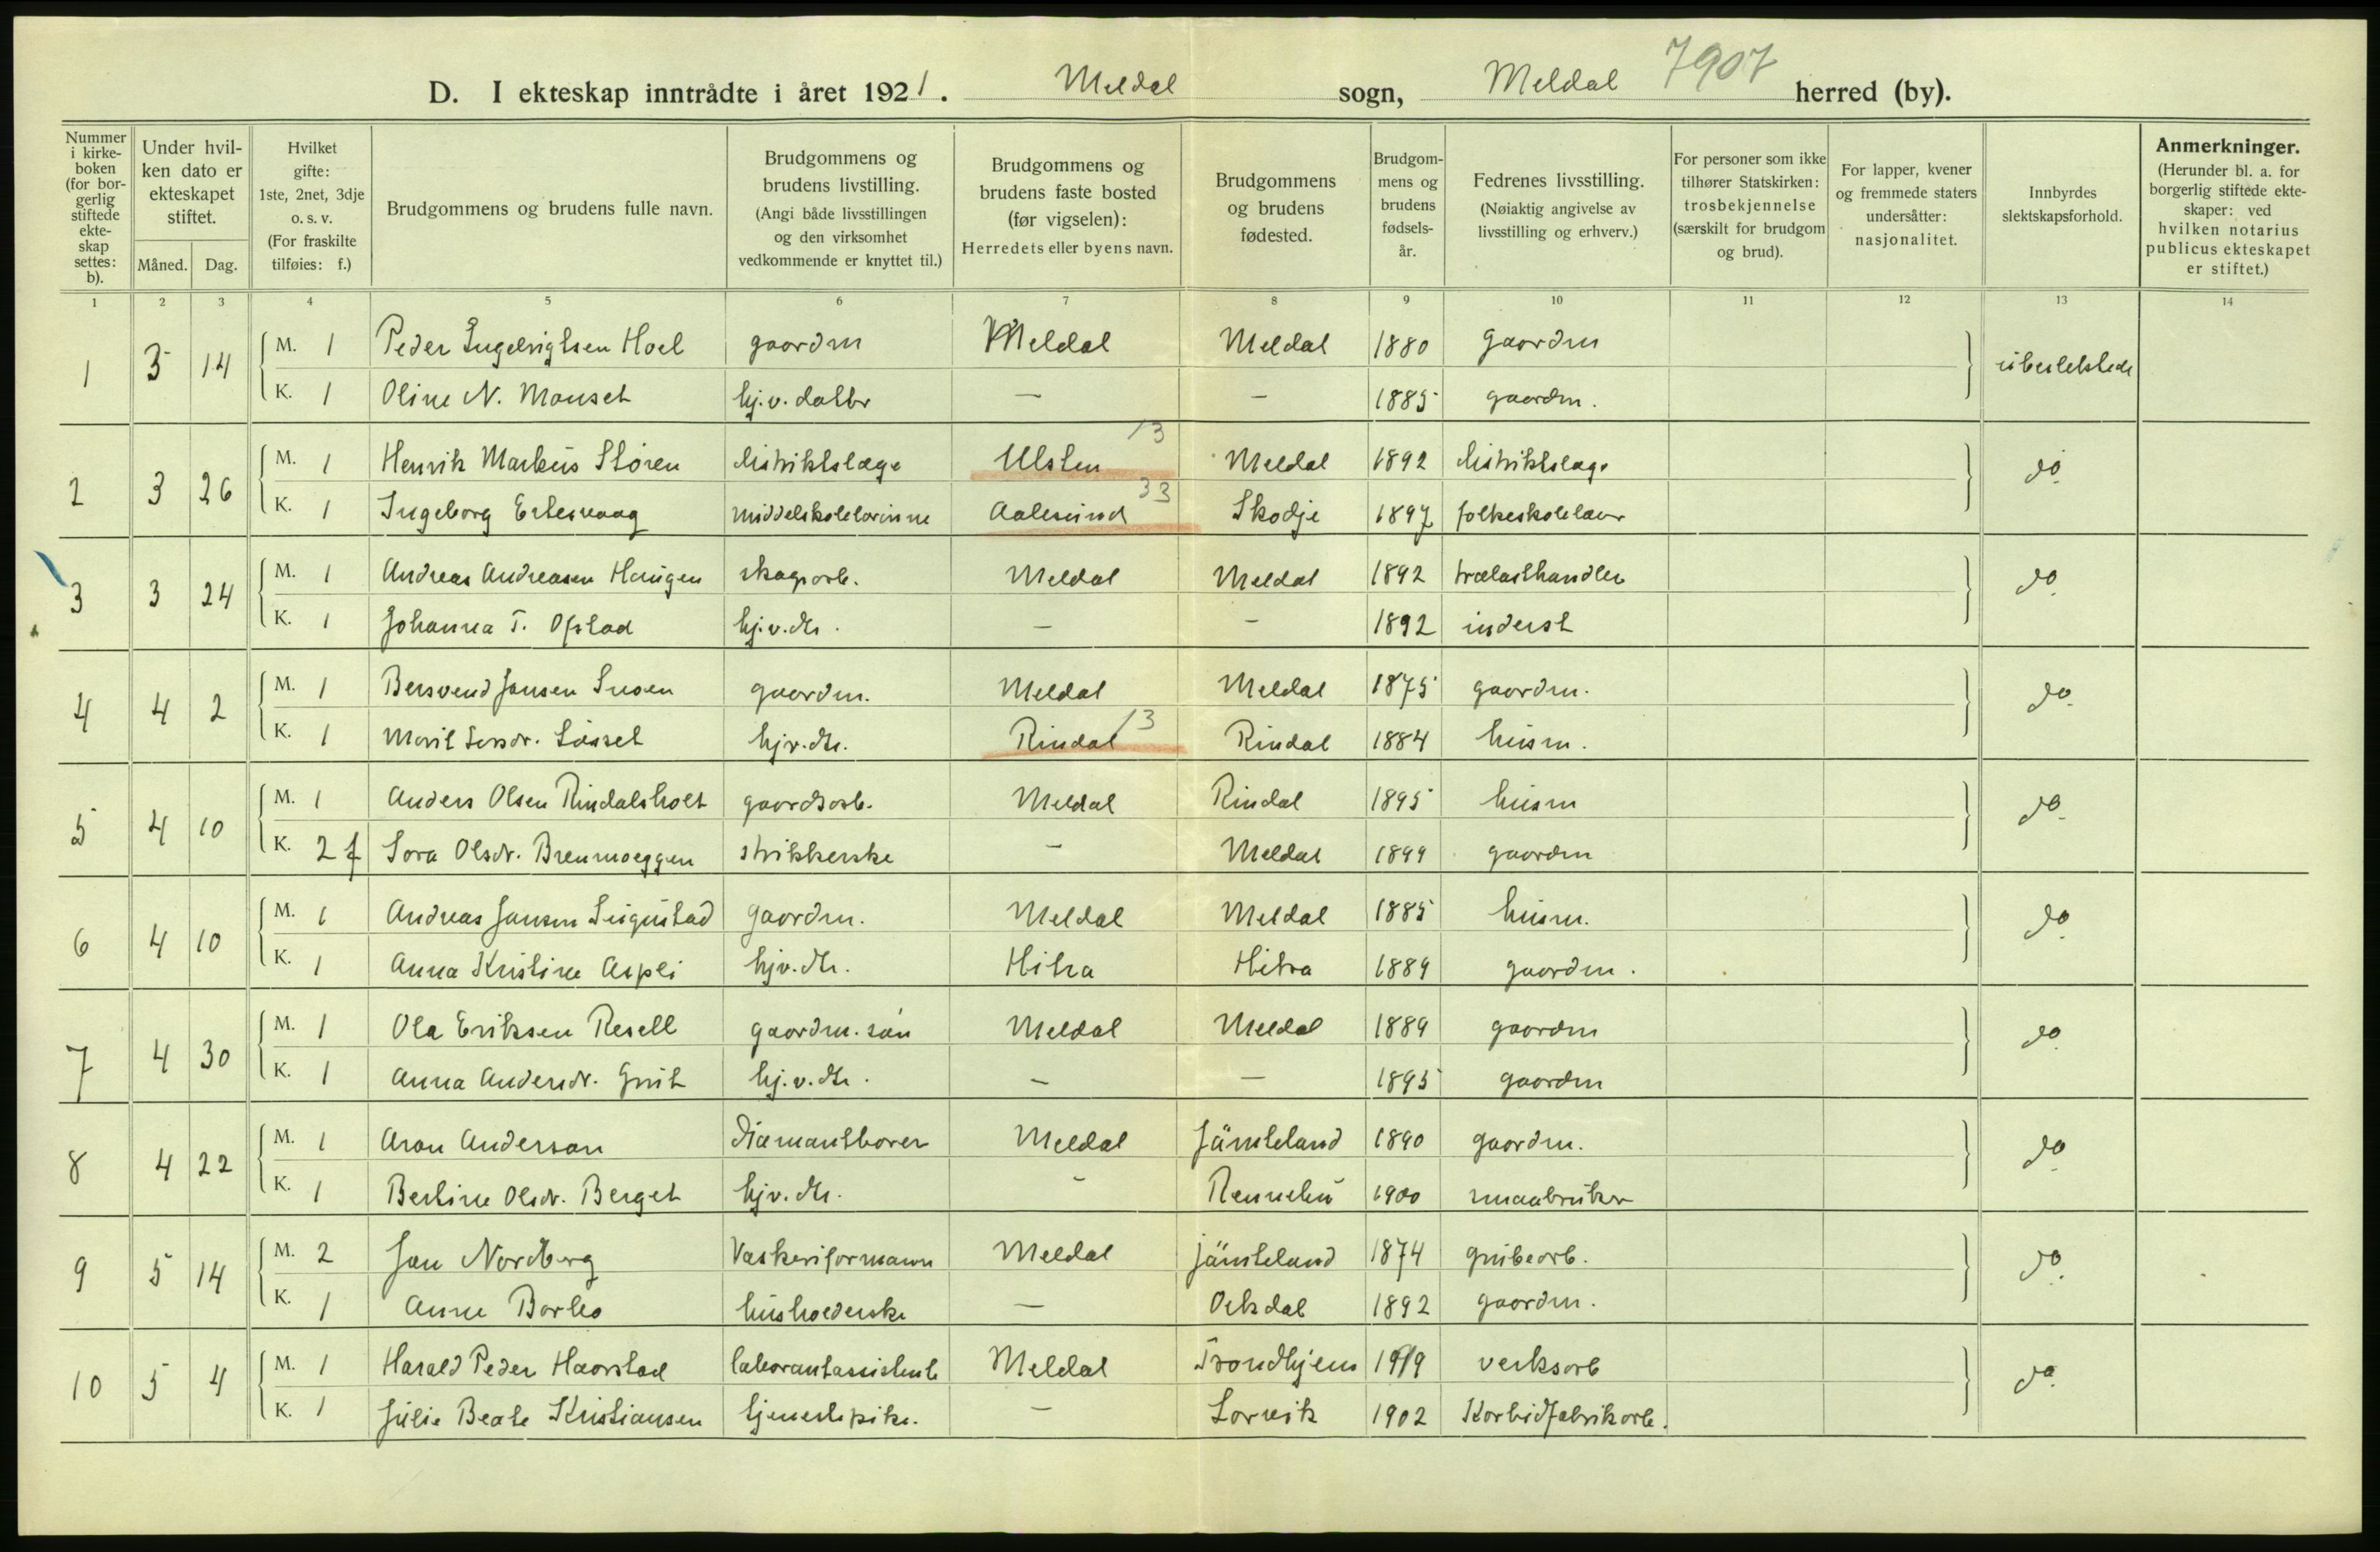 7907
D. I ekteskap inntrådte i året 1921. Meldal sogn, Meldal herred (by).
Nummer i kirke-boken (for bor-gerlig stiftede ekte-skap settes: b).
Under hvil-ken dato er ekteskapet stiftet.
Måned. Dag.
Hvilket gifte: 1ste, 2net, 3dje o. s. v. (For fraskilte tilføies: f.)
Brudgommens og brudens fulle navn.
Brudgommens og brudens livstilling. (Angi både livsstillingen og den virksomhet vedkommende er knyttet til.)
Brudgommens og brudens faste bosted (før vigselen): Herredets eller byens navn.
Brudgommens og brudens fødested.
Brudgom-mens og brudens fødsels-år.
Fedrenes livsstilling. (Nøiaktig angivelse av livsstilling og erhverv.)
For personer som ikke tilhører Statskirken: trosbekjennelse (særskilt for brudgom og brud).
For lapper, kvener og fremmede staters undersåtter: nasjonalitet.
Innbyrdes slektskapsforhold.
Anmerkninger. (Herunder bl. a. for borgerlig stiftede ekte-skaper: ved hvilken notarius publicus ekteskapet er stiftet.)
1 2 3 4 5 6 7 8 9 10 11 12 13 14
1 3 14 M. 1 Peder Ingebrigtsen Hoel gaardm Meldal Meldal 1880 gaardm ubeslektede
K. 1 Oline N. Mauset hj.v. datter — — 1885 gaardm.
13
2 3 26 M. 1 Henrik Markus Støren distriktslæge Ulsten Meldal 1892 distriktslæge do.
33
K. 1 Ingeborg Ertesvaag middelskolelærinne Aalesund Skodje 1897 folkeskolelærer
3 3 24 M. 1 Andreas Andreasen Haugen skogsarb. Meldal Meldal 1892 trælasthandler do.
K. 1 Johanna T. Opstad hj.v.dtr. — — 1892 inderst
4 4 2 M. 1 Bersvend Jansen Snoen gaardm. Meldal Meldal 1875 gaardm. do.
13
K. 1 Marit Larsdr. Løsset hjv.dtr. Rindal Rindal 1884 husm.
5 4 10 M. 1 Anders Olsen Rindalsholt gaardsarb. Meldal Rindal 1895 husm do.
K. 2 f Sara Olsdr. Brennmoeggen strikkerske — Meldal 1899 gaardm
6 4 10 M. 1 Andreas Jansen gaardm. Meldal Meldal 1885 husm. do.
K. 1 Anna Kristine Aspli hjv.dtr. Hitra Hitra 1889 gaardm.
7 4 30 M. 1 Ola Eriksen Resell gaardm. søn Meldal Meldal 1889 gaardm do.
K. 1 Anna Andersdr. Grut hj.v.dtr. — — 1895 gaardm
8 4 22 M. 1 Aron Anderson Diamantborer Meldal Jämteland 1890 gaardm. do.
K. 1 Berline Olsdr. Berget hjv.dtr. — Rennebu 1900 smaabruker
9 5 14 M. 2 Jan Nordberg Vaskeriformann Meldal Jämteland 1874 grubearb. do.
K. 1 Anne Barbo husholderske — Orkdal 1892 gaardm.
10 5 4 M. 1 Harald Peder Haarstad laborantassistent Meldal Trondhjem verksarb do.
K. 1 Julie Beate Kristiansen tjenestepike. — Larvik 1902 Karbidfabrikarb.